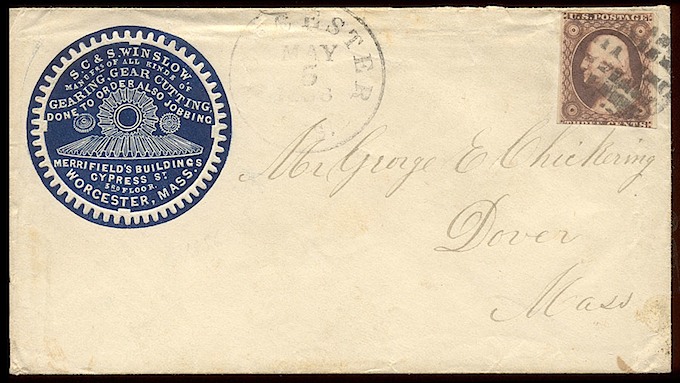 S.C. & S. WINSLOW
MANFRS OF ALL KINDS OF
GEARING, GEAR CUTTING
DONE TO ORDER ALSO JOBBING
MERRIFIELD'S BUILDINGS
CYPRESS ST.
3RD FLOOR.
WORCESTER, MASS.
CESTER
MAY
5
U.S. POSTAGE
THREE CENTS
Mr George E Chickering
Dover
Mass